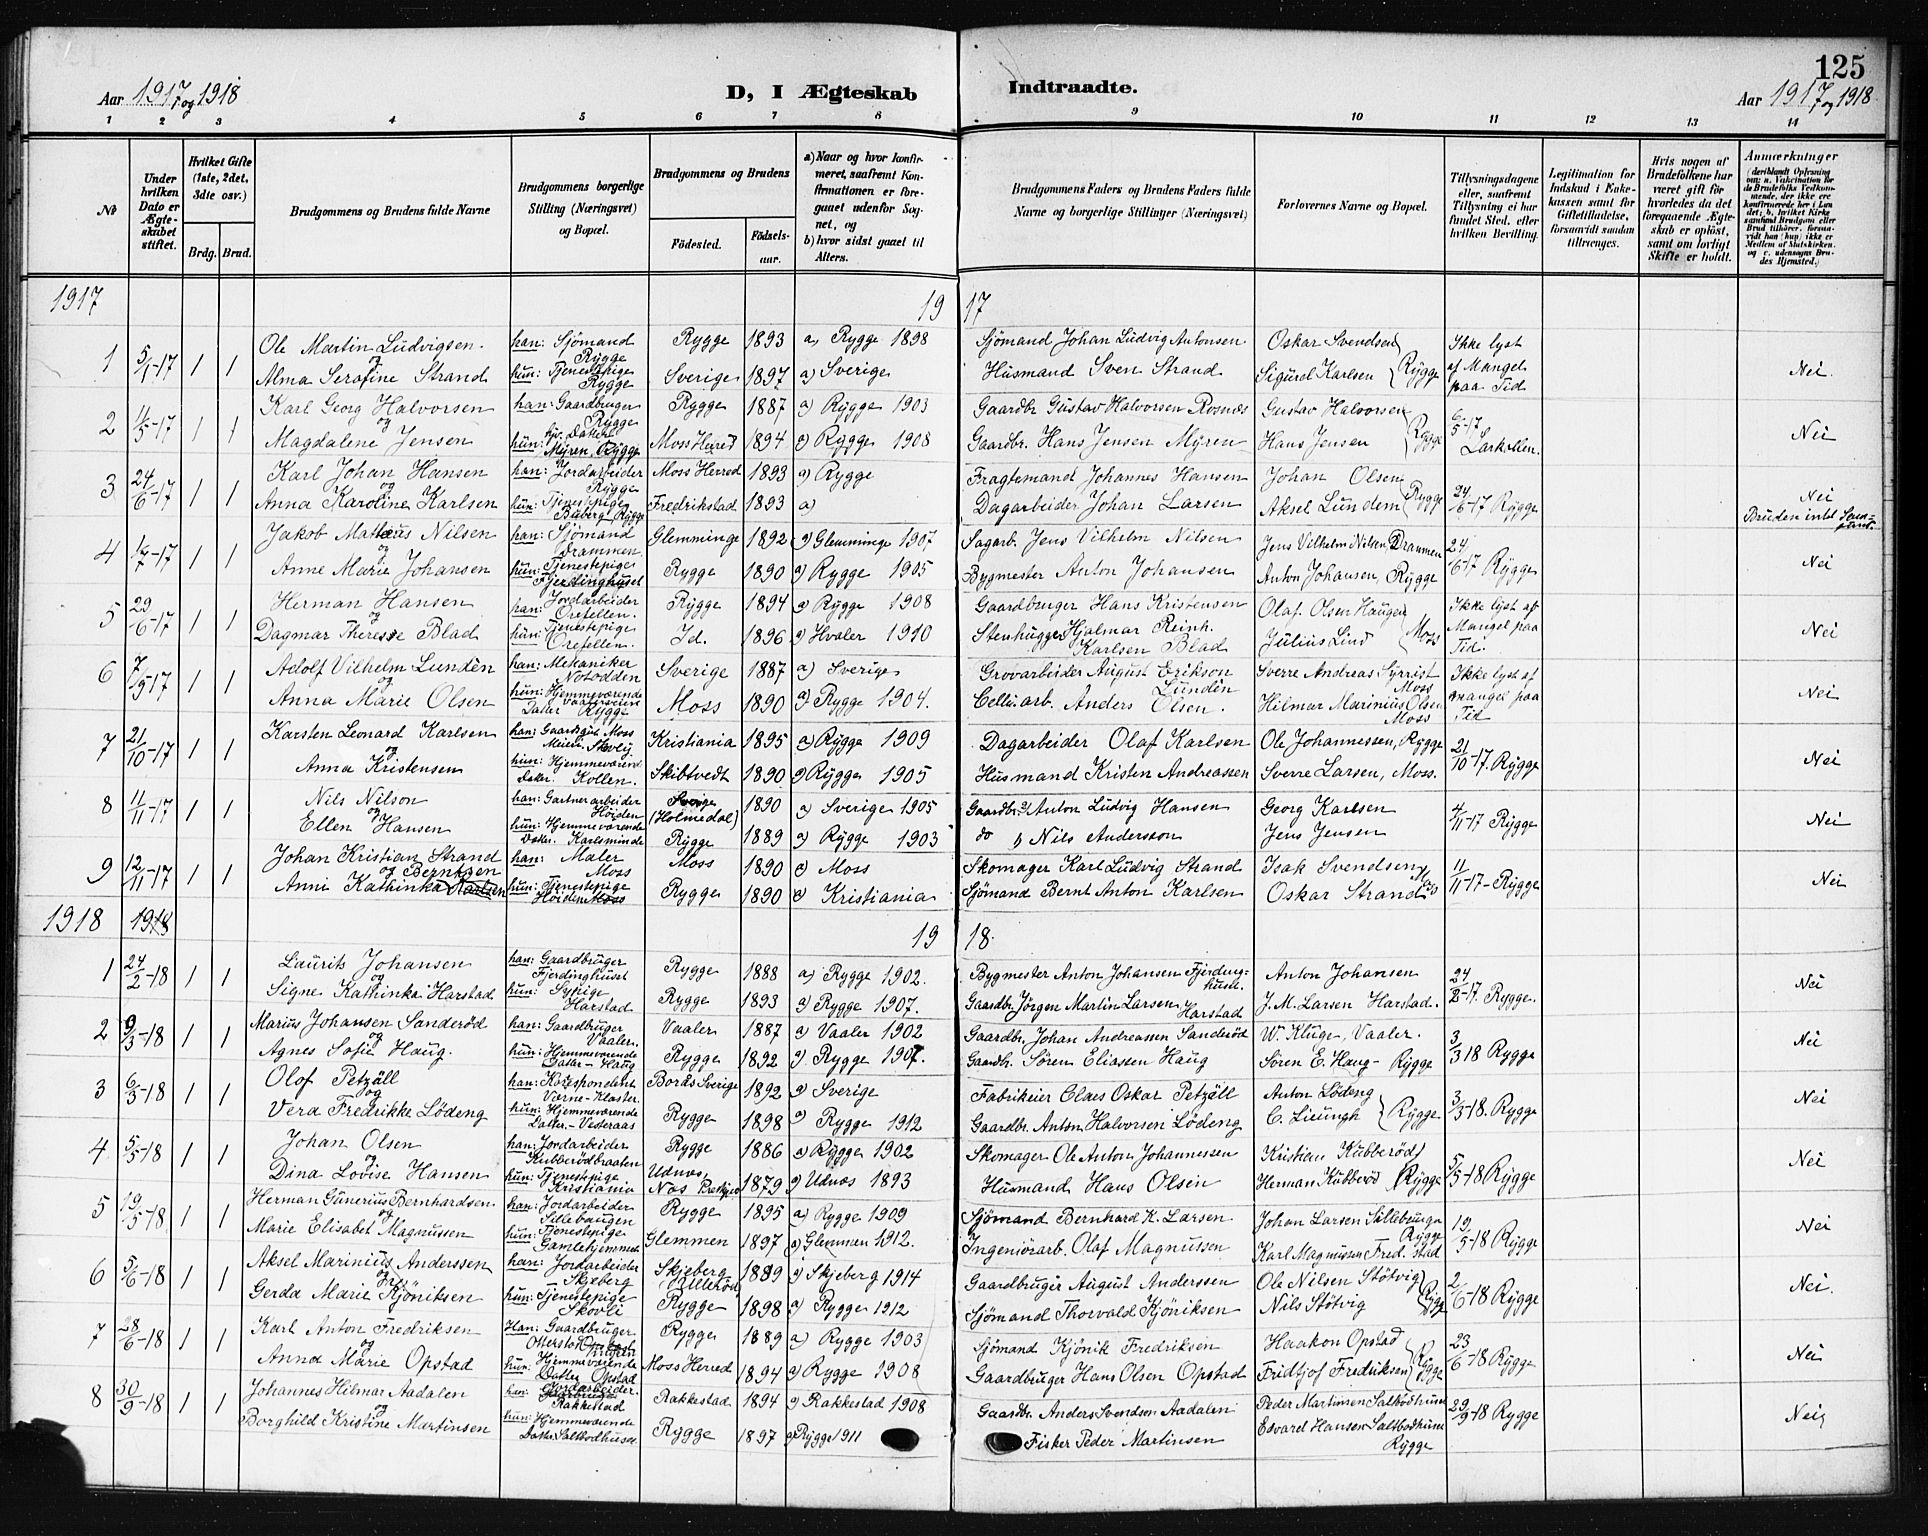 125
Aar 1917 og 1918 D, I Ægteskab Indtraadte. Aar 1917 og 1918
1 2 3 4 5 6 7 8 9 10 11 12 13 14
No
Under hvilken Dato er Ægteskabet stiftet.
Hvilket Gifte (1ste, 2det, 3die osv.)
Brdg. Brud.
Brudgommens og Brudens fulde Navne
Brudgommens borgerlige Stilling (Næringsvei) og Bopæl.
Brudgommens og Brudens
Fødested. Fødselsaar.
a) Naar og hvor konfirmeret, saafremt Konfirmationen er foregaaet udenfor Sognet, og
b) hvor sidst gaaet til Alters.
Brudgommens Faders og Brudens Faders fulde Navne og borgerlige Stillinger (Næringsvei)
Forlovernes Navne og Bopæl.
Tillysningsdagene eller, saafremt Tillysning ei har fundet Sted, efter hvilken Bevilling.
Legitimation for Indskud i Enkekassen samt for Giftetilladelse, forsaavidt saadan tiltrænges.
Hvis nogen af Brudefolkene har været gift før hvorledes da det foregaaende Ægteskab er opløst, samt om lovligt Skifte er holdt.
Anmærkninger
1917 1917
1 5/1-17 1 1 Ole Martin Ludvigsen han: Sjömand Rygge Rygge 1893 a) Rygge 1898 Sjömand Johan Ludvig Antonsen Oskar Svendsen Ikke lyst
og Alma Serafine Strand hun: Tjenestepige Rygge Sverige 1897 a) Sverige Husmand Sven Strand Sigurd Karlsen Rygge af Mangel paa Tid Nei.
2 11/5-17 1 1 Karl Georg Halvorsen han: Gaardbruger Rygge Rygge 1887 a) Rygge 1903 Gaardbr Gustav Halvorsen Rosnæs Gustav Halvorsen 6/5-17
og Magdalene Jensen hun: hjv. Datter Myren, Rygge Moss Herred 1894 a) Rygge 1908 Gaardbr. Hans Jensen Myren Hans Jensen Rygge Larkollen. Nei
3 24/6-17 1 1 Karl Johan Hansen han: Jordarbeider Rygge Moss Herred 1893 a) Rygge Fragtemand Johannes Hansen Johan Olsen
og Anna Karoline Karlsen hun: Tjenestepige Rygge Fredrikstad 1893 a) Dagarbeider Johan Larsen Aksel Lundem Rygge 24/6-17 Rygge Nei
4 1/7-17 1 1 Jakob Mattæus Nilsen han: Sjömand Drammen Glemminge 1892 a) Glemminge 1907 Sagarb. Jens Vilhelm Nilsen Jens Vilhelm Nilsen, Drammen 24
og Anne Marie Johansen hun: Tjenestepige Fjerdinghuset Rygge 1890 a) Rygge 1905 Bygmester Anton Johansen Anton Johansen, Rygge 6-17 Rygge Nei
5 29/6-17 1 1 Herman Hansen han: Jordarbeider Orefellen. Rygge 1894 a) Rygge 1908 Gaardbruger Hans Kristensen Olaf Olsen Haugen Ikke lyst af
og Dagmar Therese Blad hun: Tjenestepige Orefellen. Id. 1896 a) Hvaler 1910 Stenhugger Hjalmar Reinh. Karlsen Blad Julius Lind Moss Mangel paa Tid. Nei
6 7/9 17 1 1 Adolf Vilhelm Lundèn han: Mekaniker Notodden Sverige 1887 a) Sverige Grovarbeider August Erikson Lundèn Sverre Andreas Syrrist Moss Ikke lyst af
og Anna Marie Olsen hun: Hjemmeværende Datter Rygge Moss 1890 a) Rygge 1904. Cellu.arb. Anders Olsen. Hilmar Marinius Olsen Moss mangel paa Tid Nei
7 21/10-17 1 1 Karsten Leonard Karlsen han: Gaardsgut Moss Kristiania 1895 a) Rygge 1909 Dagarbeider Olaf Karlsen Ole Johannessen, Rygge 21
og Anna Kristensen hun: Hjemmeværend. Datter. Kollen. Skibtvedt 1890 a) Rygge 1905 Husmand Kristen Andreassen Sverre Larsen, Moss. 10-17. Rygge Nei
8 11/11-17 1 1 Nils Nilson han: Gartnerarbeider Höiden Sverige (Holmedal) 1890 a) Sverige 1905 Gaardbr. Anton Ludvig Hansen Georg Karlsen 4/11-17 Rygge
og Ellen Hansen hun: Hjemmeværende Datter. Karlsminde Rygge 1889 a) Rygge 1903 do Nils Andersson Jens Jensen Nei
9 12/11-17 1 1 Johan Kristian Strand han: Maler Moss Moss 1890 a) Moss Skomager Karl Ludvig Strand Isak Svendsen 11
og Anni Kathinka Karlsen Berntsen hun: Tjenestepige Höiden Moss Rygge 1890 a) Kristiania Sjömand Bernt Anton Karlsen Oskar Strand 11-17-Rygge Nei
1918 1918 1918.
1 24/2-18 1 1 Laurits Johansen han: Gaardbruger Fjerdinghuset Rygge 1888 a) Rygge 1902. Bygmester Anton Johansen Fjerdinghuset. Anton Johansen 24
og Signe Kathinka Harstad hun: Sypige Harstad Rygge 1893 a) Rygge 1907. Gaardbr. Jörgen Martin Larsen Harstad J. M. Larsen Harstad. 2-17. Rygge. Nei
2 9/3-18 1 1 Marius Johansen Sanderöd han: Gaardbruger Vaaler. Vaaler 1887 a) Vaaler 1902 Gaardbr. Johan Andreassen Sanderöd W. Kluge, Vaaler. 3
og Agnes Sofie Haug. hun: Hjemmeværende Datter - Haug Rygge 1892 a) Rygge 1907. Gaardbr. Sören Eliassen Haug Sören E. Haug - Rygge 3 18 Rygge Nei
3 6/3-18 1 1 Olof Petzäll han: Korespondent Værne-Kloster. Borås Sverige 1892 a) Sverige Fabrikeier Claes Oskar Petzäll Anton Lödeng
og Vera Fredrikke Lödeng hun: Hjemmeværende Datter.- Vesteraas Rygge 1898 a) Rygge 1912 Gaardbr. Anton Halvorsen Lödeng C. Lieungh Rygge 3/3-18. Rygge Nei
4 5/5-18 1 1 Johan Olsen han: Jordarbeider Kubberödbraaten Rygge 1886 a) Rygge 1902 Skomager Ole Anton Johannessen Kristian Kubberöd
og Dina Lovise Hansen hun: Tjenestepige Kristiania Udnæs Næs 1879 a) Udnæs 1893 Husmand Hans Olsen Herman Kubberöd Rygge 5/5-18 Rygge Nei
5 19/5-18 1 1 Herman Gunerius Bernhardsen han: Jordarbeider Sillebaugen Rygge 1895 a) Rygge 1909 Sjömand Bernhard K. Larsen Johan Larsen Sillebauge Rygge 19
og Marie Elisabet Magnussen hun: Tjenestepige Gamlehjemmet Glemmen 1897 a) Glemmen 1912. Ingeniörarb. Olaf Magnussen Karl Magnussen Fred.stad 5-18 Rygge Nei
6 5/6-18 1 1 Aksel Marinius Anderssen han: Jordarbeider Skjeberg Skjeberg 1889 a) Skjeberg 1914 Gaardbruger August Anderssen Ole Nilsen Stötvig 2
og Gerda Marie Kjöniksen hun: Tjenestepige Skovli Rygge 1898 a) Rygge 1912 Sjömand Thorvald Kjöniksen Nils Stötvig Rygge 6-18 Rygge Nei.
7 28/6-18 1 1 Karl Anton Fredriksen Han: Gaardbruger Rygge 1889 a) Rygge 1903 Sjömand Kjönik Fredriksen Haakon Opstad 23
og Anna Marie Opstad hun: Hjemmeværende Datter Opstad Moss Herred 1894 a) Rygge 1908 Gaardbruger Hans Olsen Opstad Fridtjof Fredriksen Rygge 6-18 Rygge Nei
8 30/9-18 1 1 Johannes Hilmar Aadalen han: Jordarbeider. Rakkestad Rakkestad 1894 a) Rakkestad 1908 Gaardbr. Anders Svendsen Aadalen Peder Martinsen Saltbodhuset 29
og Borghild Kristine Martinsen hun: Hjemmeværende Datter. Saltbodhuset Rygge 1897 a) Rygge 1911 Fisker Peder Martinsen Edvard Hansen Saltbodhuset Rygge 9-18 Rygge Nei